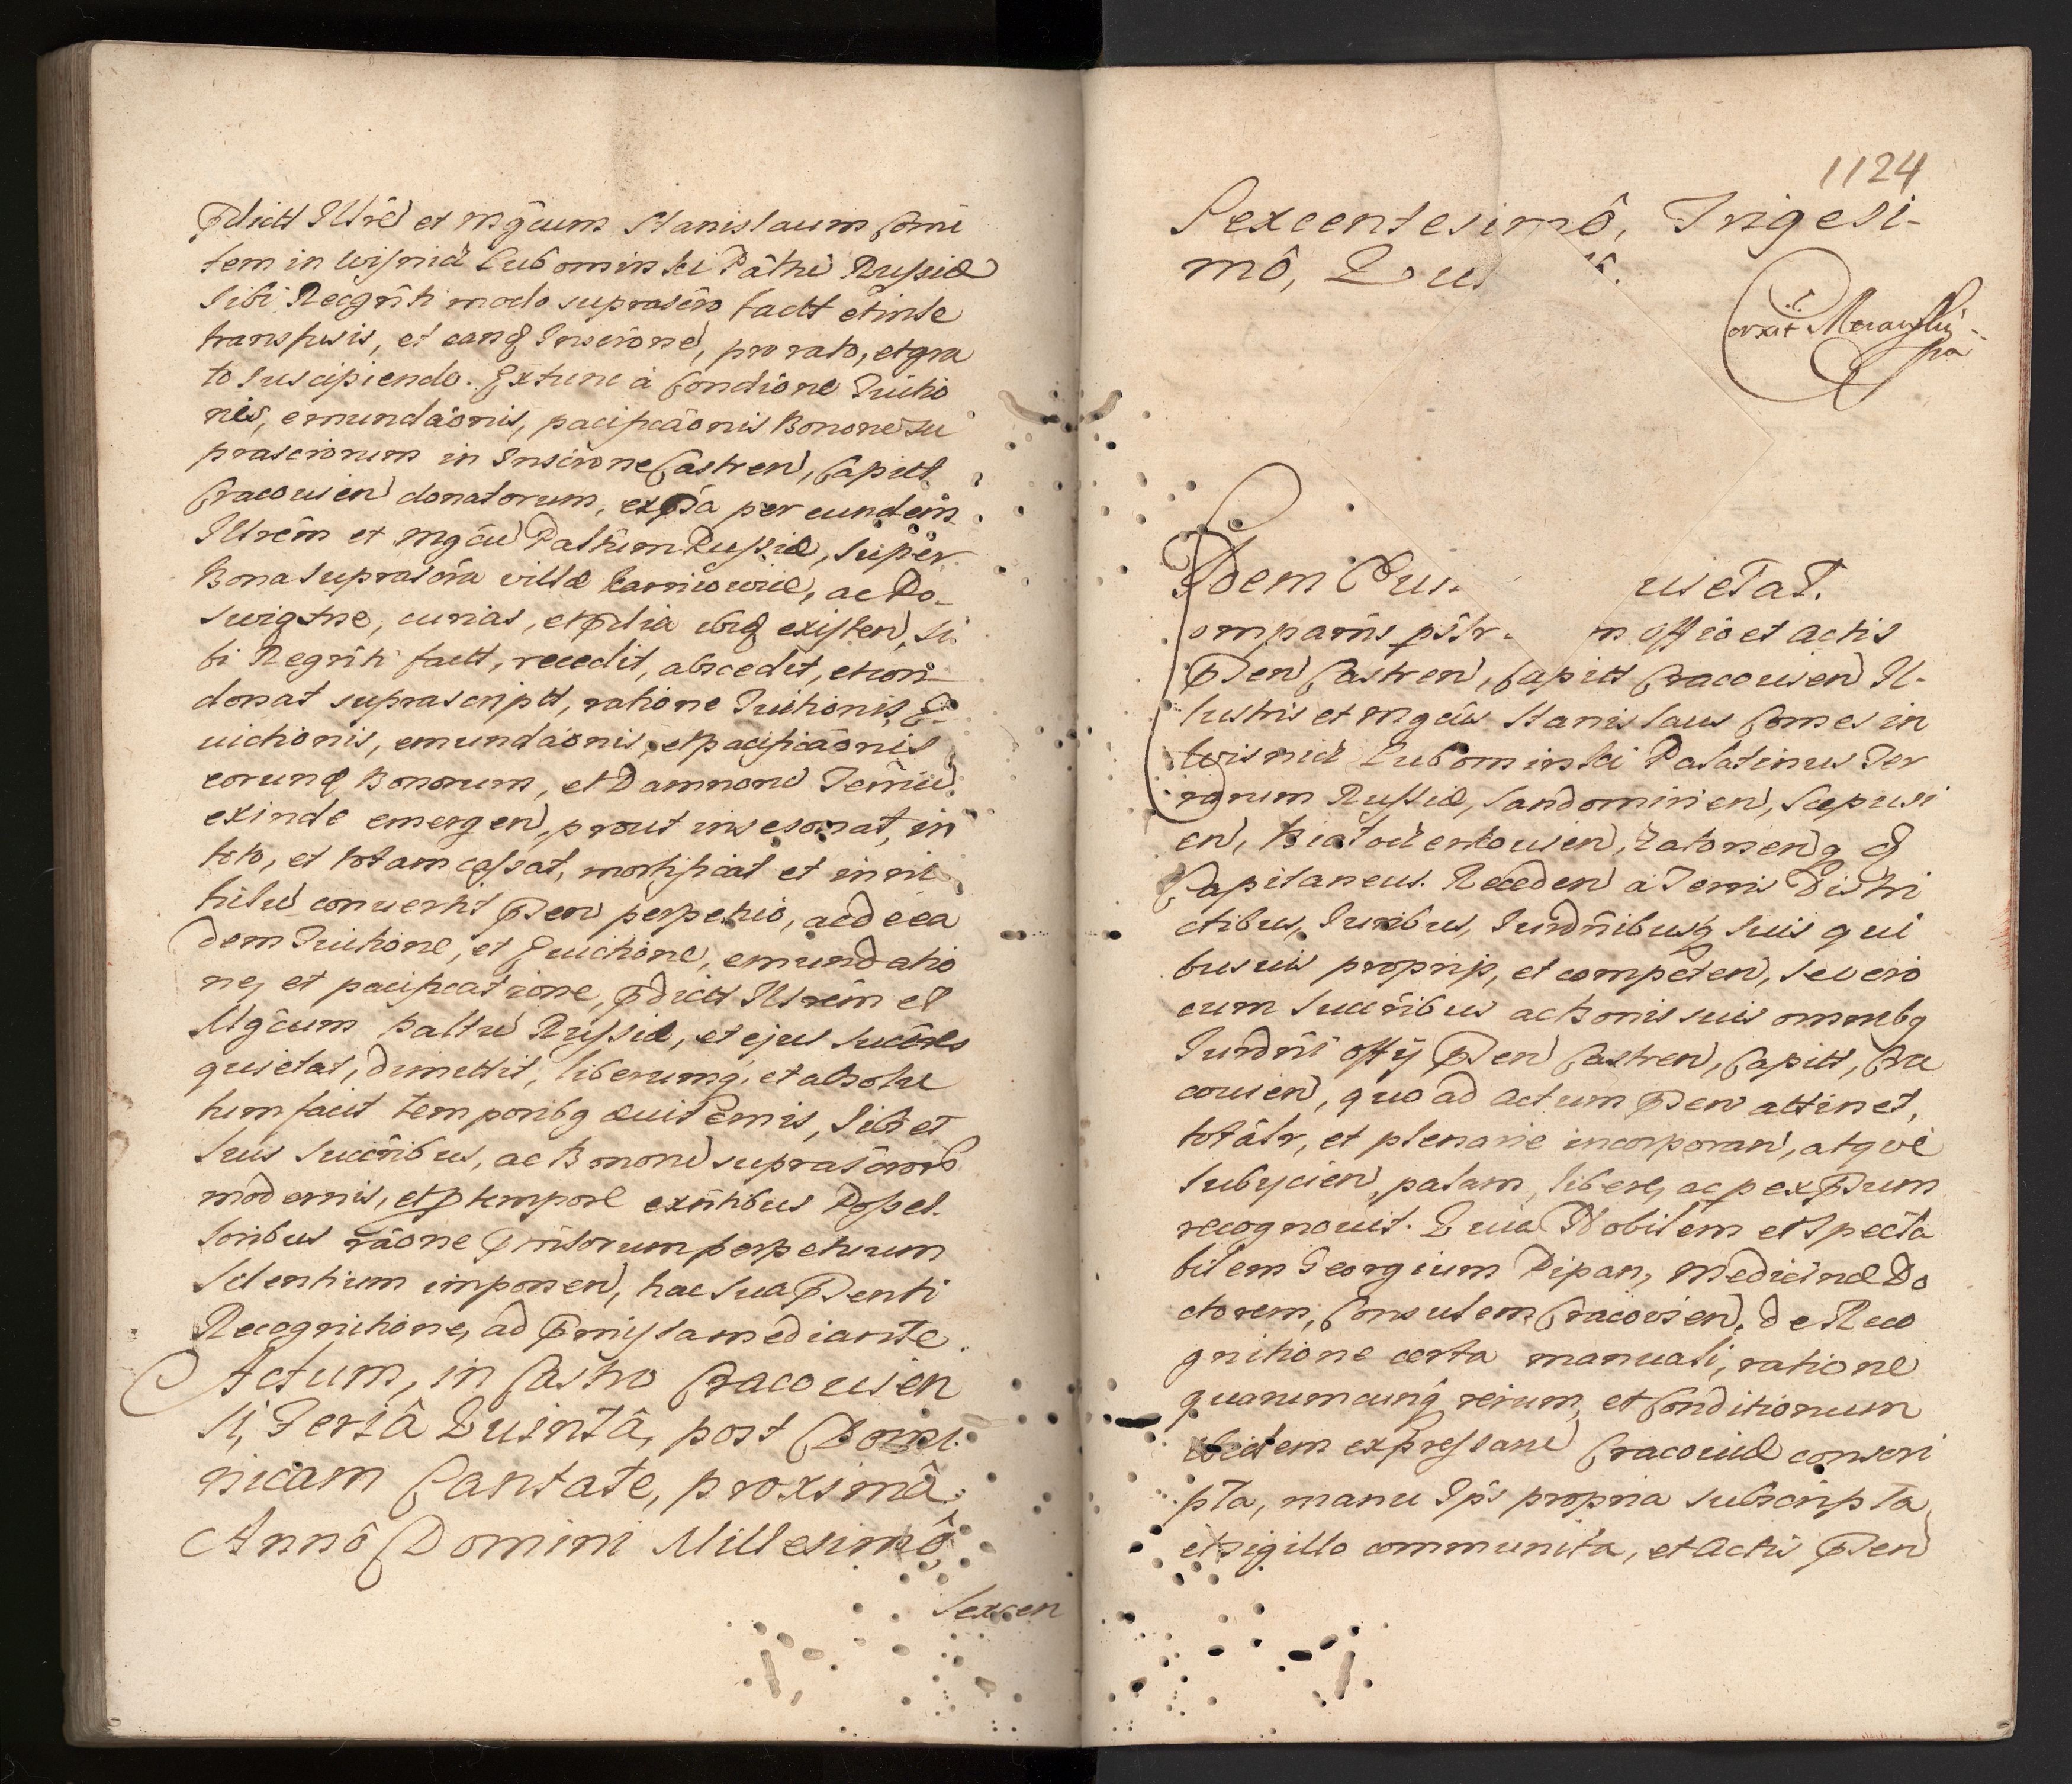 Pdictt Illrē et Mgcum Stanislaum Comi
tem in Wisnicz Lubominski Palñi Russiæ
sibi Recgñti modo suprascro factt et in se
transfusis, et eanq Inscrone, pro rato, et gra
to suscipiendo. Extunc à Condione Tuitio
nis, emundaonis, pacificaonis Bonone su
prascronum in Inscrone Castren, Capitt
Cracouien donatorum, exqa per eundem
Illrem et Mgcu Paltum Russiæ, super
Bona suprascra villæ Karniowice, ac Do-
, curias, et pdia ibiq existen, si
bi Regñti factt, recedit, abscedit, et con-
donat suprascriptt, ratione Tuitionis, E-
uictionis, emundaonis, et pacificaonis
eorunq Bonorum, et Damnone Terriu
exinde emergen, prout ins esonat, in
toto, et totam cassat, mortificat et in ni
hilu conuertit Pñen perpetuo, ac de ea
dem Tuitione, et Euictione, emundatio
ne, et pacificatione, pdictt Illrem et
Mgcum Paltu Russiæ, et ejus succres
quietat, dimittit, liberumq, et absolu
tum facit temporibq æuiternis, sibi et
suis succribus, ac Bonone suprascrorb
modernis, et p tempore exñtibus Posses-
soribus raone Pmisorum perpetuum
silentium imponen, hac sua Psenti
Recognitione, ad Pmissa mediante.
Actum, in Castro Cracouien
si, Feriâ Quintâ, post Domi-
nicam Cantate, proximâ
Annô Domini Millesimô
Sexcen
1124
Sexcentesimô, Trigesi-
mô, Qu
Idem quietat.
omparñs psr in officio et Actis
Psen Castren, Capitt Cracouien Il-
lustris et Mgcus Stanislaus Comes in
Wisnicz Lubominski Palatinus Ter
rarum Russiæ, Sandomirien, Scepusi
en, Bialocerkouien, Zatorien q q
Capitaneus. Receden à Terris Distri
ctibus, Juribus, Jurdñibusq suis qui
busuis proprijs, et competen, se vero
cum succribus ac Bonis suis omnibq
Jurdñi offij Psen Castren, Capitt, Cra
couien, quo ad Actum Psen attinet,
totâlr, et plenarie incorporan, atqve
subycien, palam, libere, ac p expsum
recognouit. Quia Nobilem et Specta
bilem Georgium Pipan, Medicinæ Do
ctorem, Consulem Cracovien, de Reco
gnitione certa manuali, ratione
quarumcunq rerum, et Conditionum
ibidem expressane Cracoviæ conscri
pta, manu Ips propria subscripta,
et sigillo communita, et Actis Psen